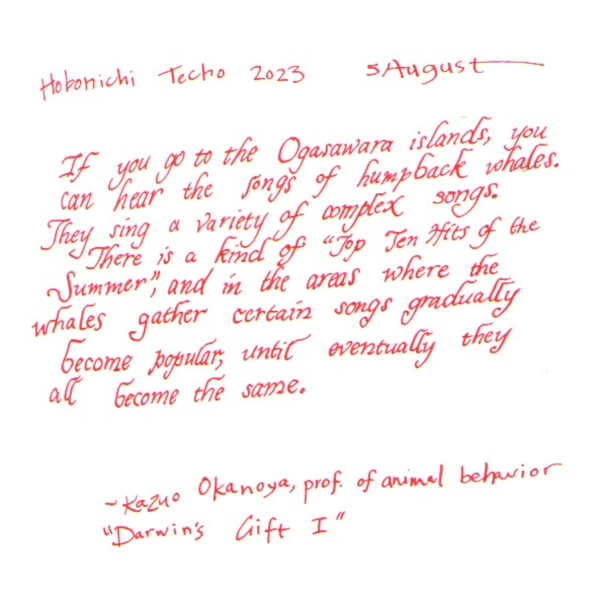 Hobonichi Techo 2023 5 August
If you go to the Ogasawara islands, you
can hear the songs of humpback whales.
They sing a variety of complex songs.
There is a kind of "Top Ten Hits of the
Summer", and in the areas where the
whales gather certain songs gradually
become popular, until eventually they
all become the same.
~Kazuo Okanoya, prof. of animal behavior
"Darwin's Gift I"